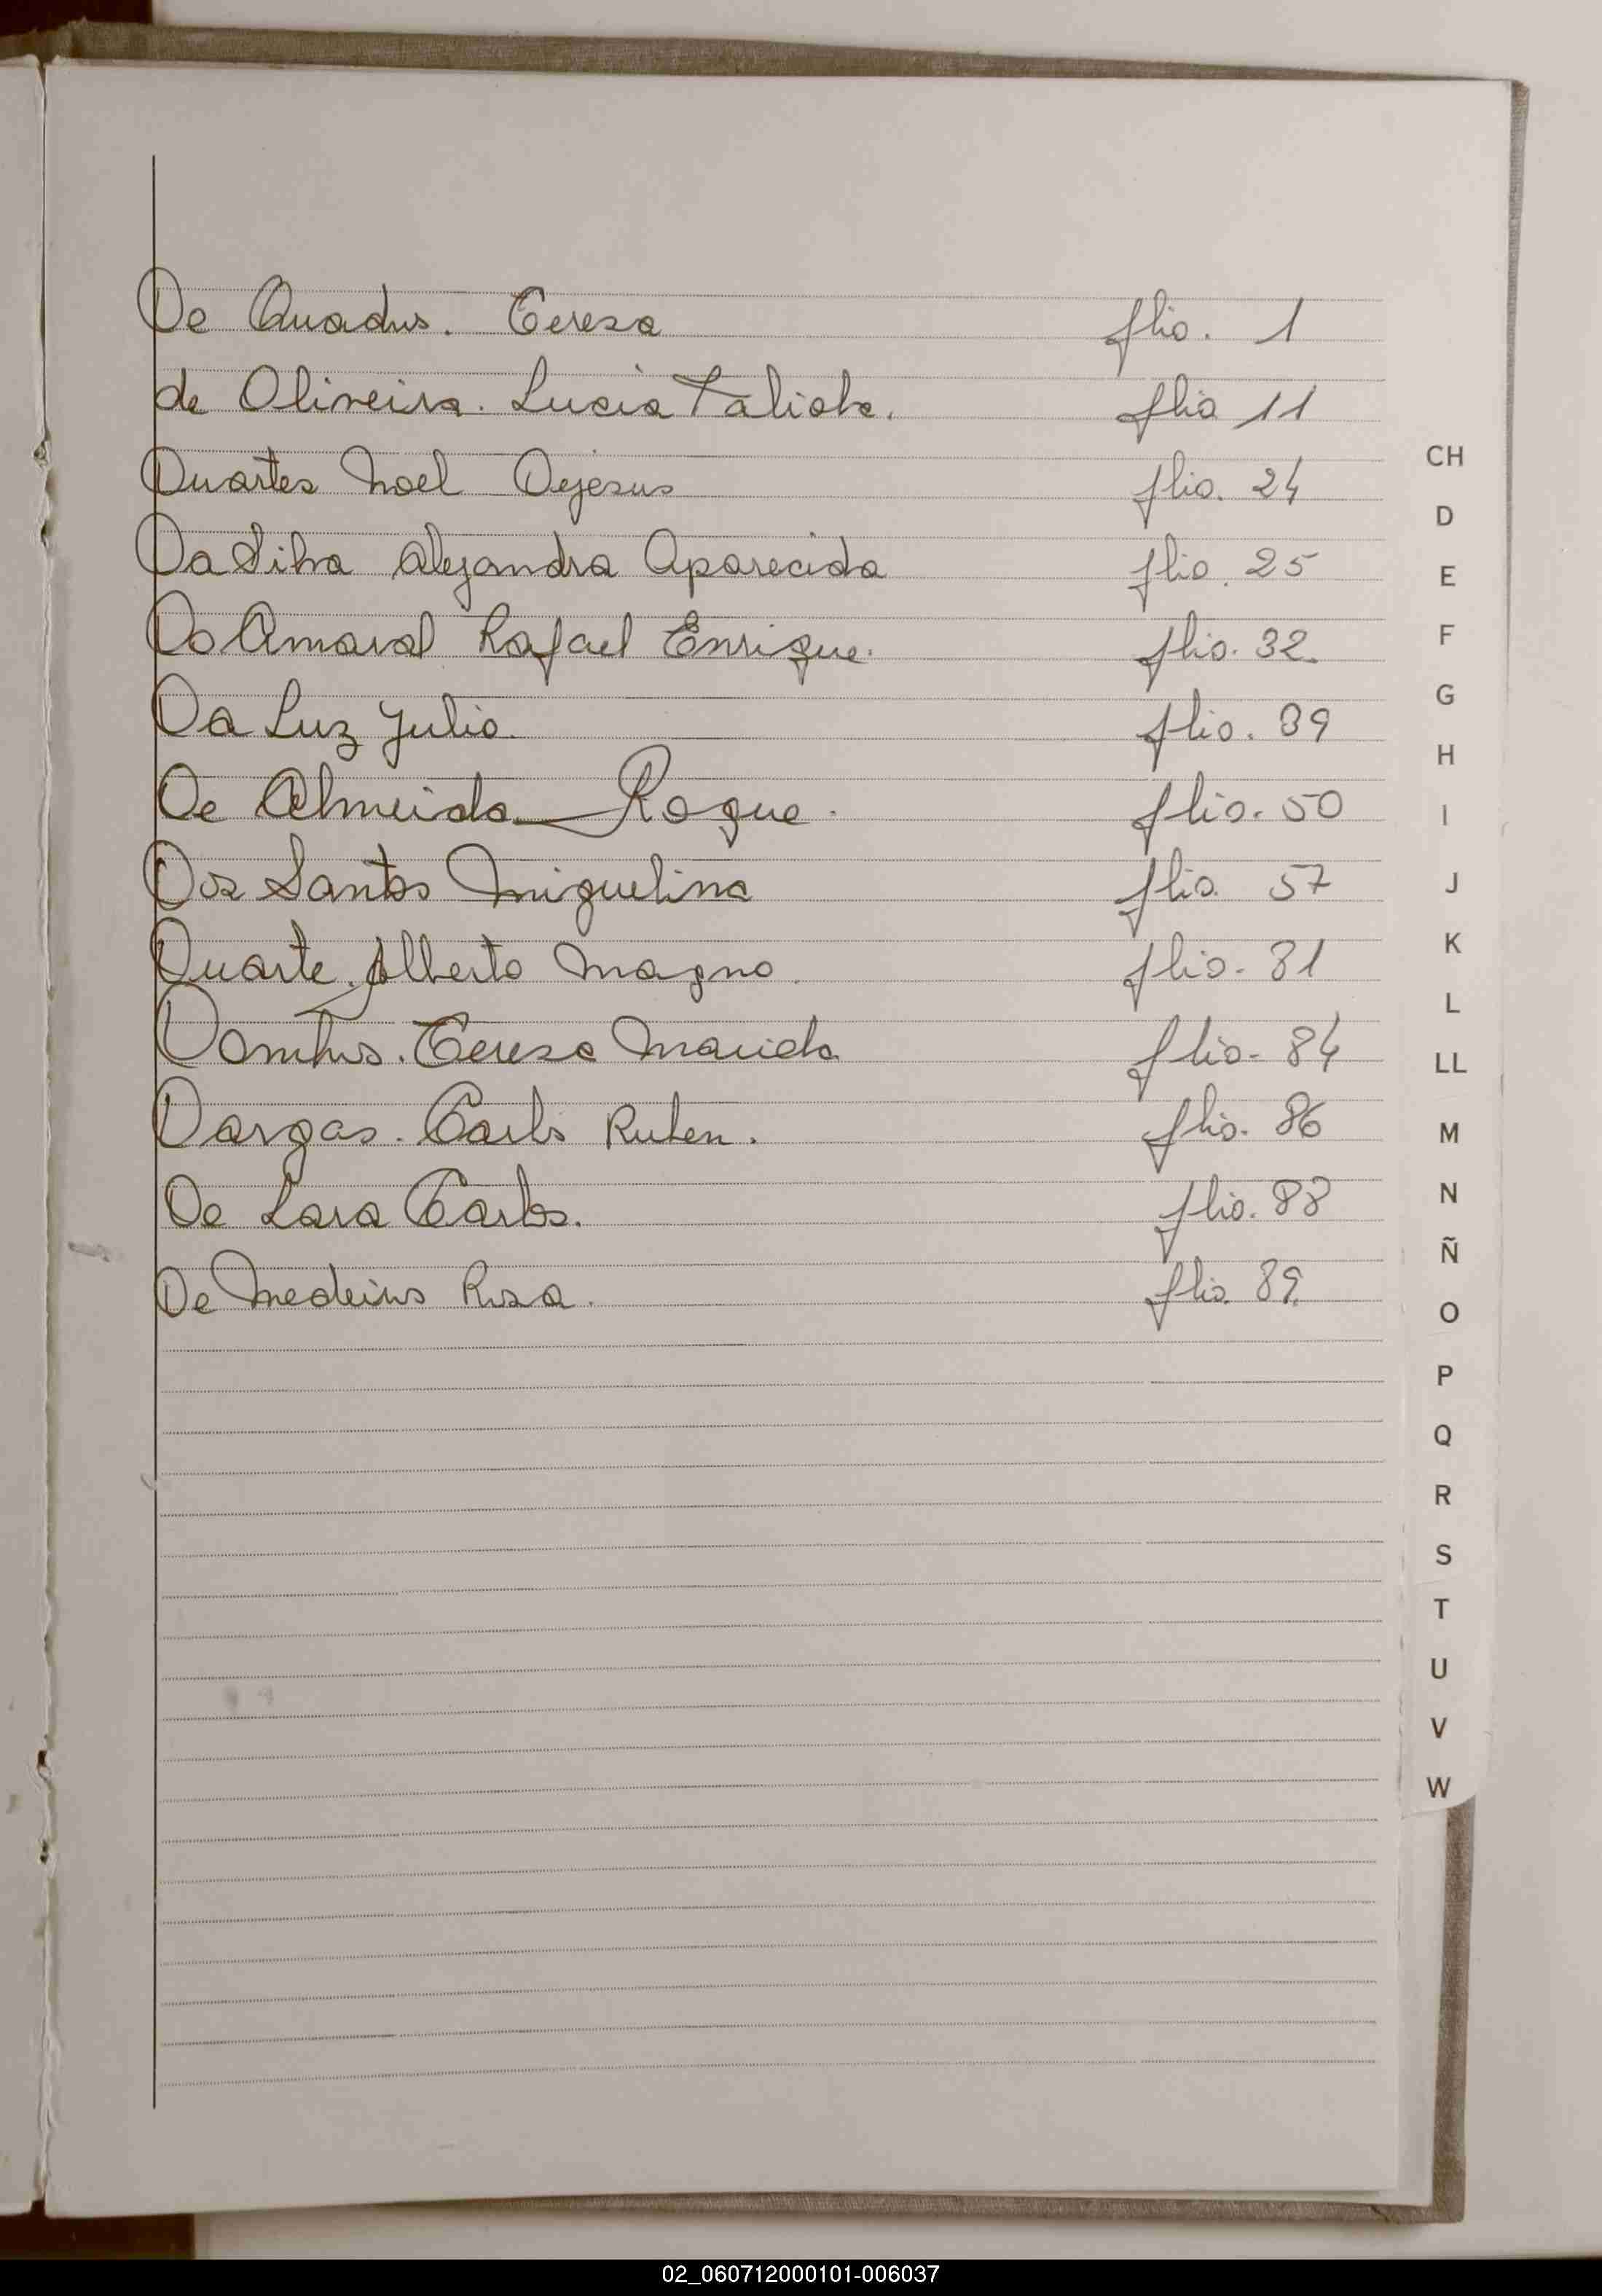 De Quadros. Teresa flio. 1
de Oliveira. Lucia flio 11
Duartes Noel Dejesus flio. 24
Da Silva Alejandra Aparecida flio. 25
Do Amaral Rafael Enrique. flio. 32.
Da Luz Julio. flio. 39
De Almeida Roque. flio. 50
Dos Santos Miguelina flio. 57
Duarte. Alberto Magno. flio. 81
Teresa flio. 84
Dargas. Carlos Ruben. flio. 86
De Lara Carlos. flio. 88
De Medeiros Rosa. flio. 89.
CH
D
E
F
G
H
I
J
K
L
LL
M
N
Ñ
O
P
Q
R
S
T
U
V
W
02_060712000101-006037